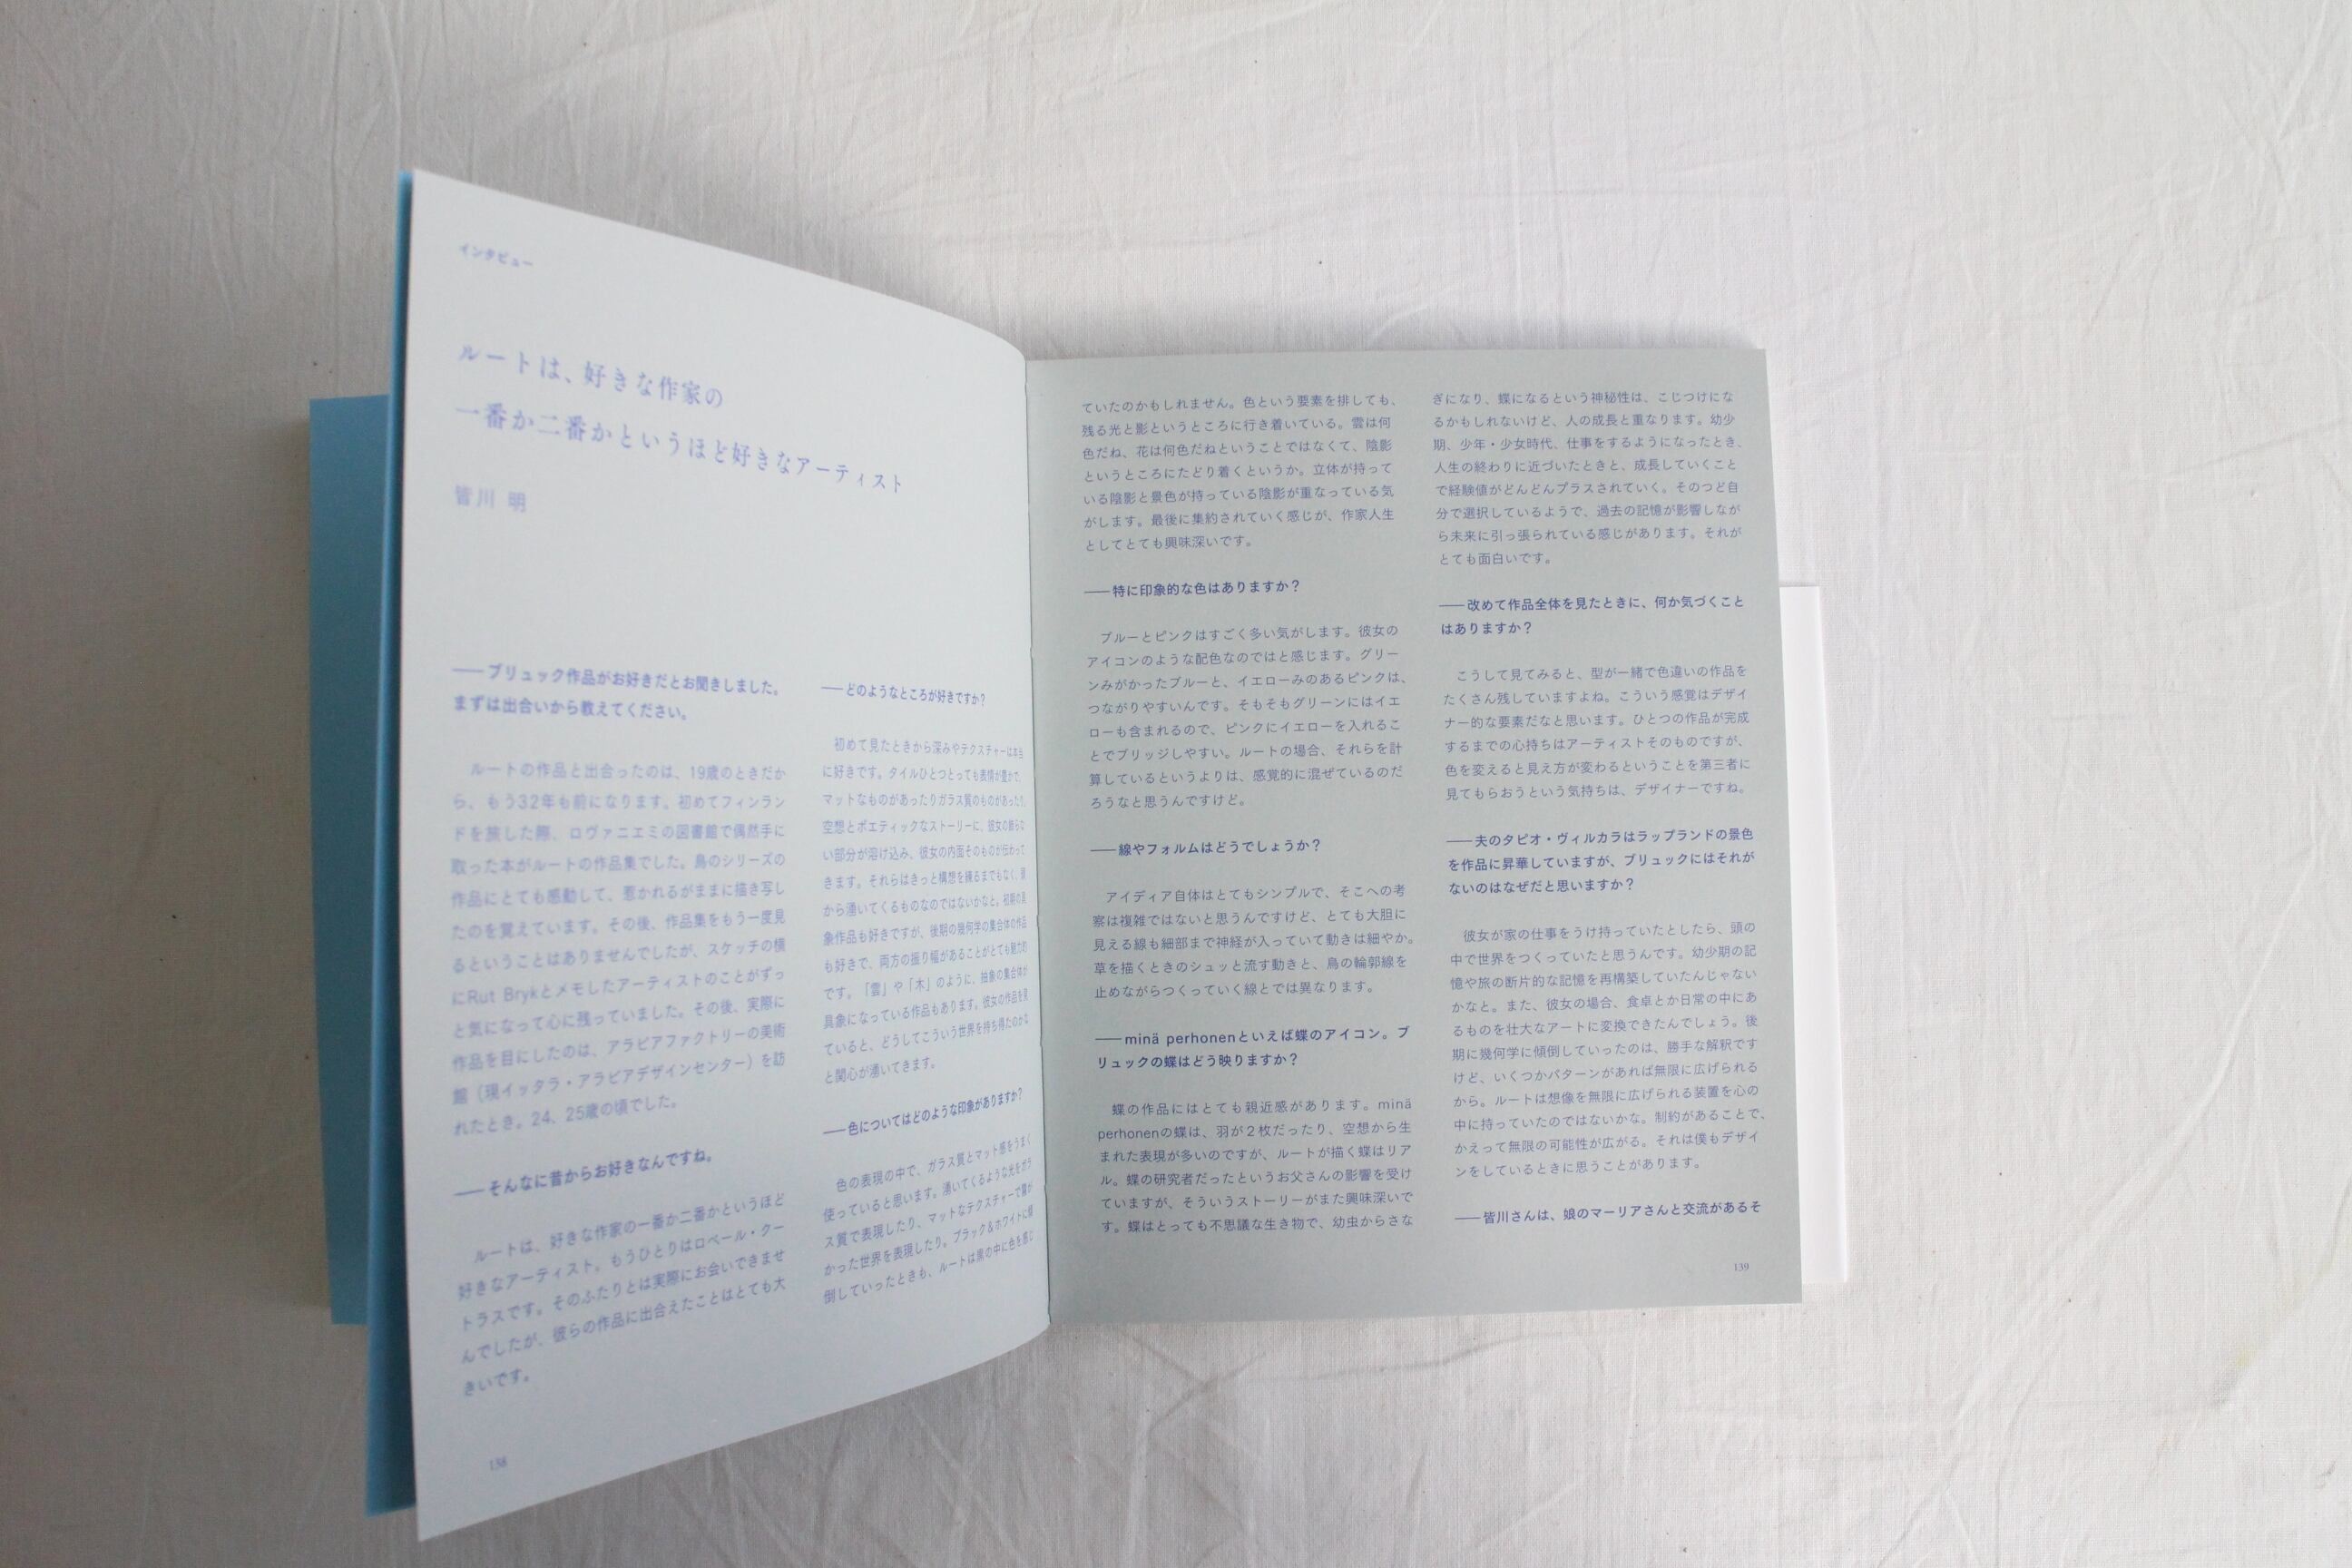 インタビュー
ルートは、好きな作家の
一番か二番かというほど好きなアーティスト
皆川 明
——ブリュック作品がお好きだとお聞きしました。
まずは出合いから教えてください。
ルートの作品と出合ったのは、19歳のときだか
ら、もう32年も前になります。初めてフィンラン
ドを旅した際、ロヴァニエミの図書館で偶然手に
取った本がルートの作品集でした。鳥のシリーズの
作品にとても感動して、惹かれるがままに描き写し
たのを覚えています。その後、作品集をもう一度見
るということはありませんでしたが、スケッチの横
にRut Brykとメモしたアーティストのことがずっ
と気になって心に残っていました。その後、実際に
作品を目にしたのは、アラビアファクトリーの美術
館（現イッタラ・アラビアデザインセンター）を訪
れたとき。24、25歳の頃でした。
——そんなに昔からお好きなんですね。
ルートは、好きな作家の一番か二番かというほど
好きなアーティスト。もうひとりはロベール・クー
トラスです。そのふたりとは実際にお会いできませ
んでしたが、彼らの作品に出合えたことはとても大
きいです。
138
——どのようなところが好きですか？
初めて見たときから深みやテクスチャーは本当
に好きです。タイルひとつとっても表情が豊かで、
マットなものがあったりガラス質のものがあったり。
空想とポエティックなストーリーに、彼女の飾らな
い部分が溶け込み、彼女の内面そのものが伝わって
きます。それらはきっと構想を練るまでもなく、
から湧いてくるものなのではないかなと。初期の具
象作品も好きですが、後期の幾何学の集合体の作品
も好きで、両方の振り幅があることがとても魅力的
です。「雲」や「木」のように、抽象の集合体が
具象になっている作品もあります。彼女の作品を見
ていると、どうしてこういう世界を持ち得たのかな
と関心が湧いてきます。
——色についてはどのような印象がありますか？
色の表現の中で、ガラス質とマット感をうまく
使っていると思います。湧いてくるような光をガラ
ス質で表現したり、マットなテクスチャーで
かった世界を表現したり。ブラック＆ホワイトに傾
倒していったときも、ルートは黒の中に色を感じ
ていたのかもしれません。色という要素を排しても、
残る光と影というところに行き着いている。雲は何
色だね、花は何色だねということではなくて、陰影
というところにたどり着くというか。立体が持って
いる陰影と景色が持っている陰影が重なっている気
がします。最後に集約されていく感じが、作家人生
としてとても興味深いです。
——特に印象的な色はありますか？
ブルーとピンクはすごく多い気がします。彼女の
アイコンのような配色なのではと感じます。グリー
ンみがかったブルーと、イエローみのあるピンクは、
つながりやすいんです。そもそもグリーンにはイエ
ローも含まれるので、ピンクにイエローを入れるこ
とでブリッジしやすい。ルートの場合、それらを計
算しているというよりは、感覚的に混ぜているのだ
ろうなと思うんですけど。
——線やフォルムはどうでしょうか？
アイディア自体はとてもシンプルで、そこへの考
察は複雑ではないと思うんですけど、とても大胆に
見える線も細部まで神経が入っていて動きは細やか。
草を描くときのシュッと流す動きと、鳥の輪郭線を
止めながらつくっていく線とでは異なります。
——minä perhonenといえば蝶のアイコン。ブ
リュックの蝶はどう映りますか？
蝶の作品にはとても親近感があります。minä
perhonenの蝶は、羽が２枚だったり、空想から生
まれた表現が多いのですが、ルートが描く蝶はリア
ル。蝶の研究者だったというお父さんの影響を受け
ていますが、そういうストーリーがまた興味深いで
す。蝶はとっても不思議な生き物で、幼虫からさな
ぎになり、蝶になるという神秘性は、こじつけにな
るかもしれないけど、人の成長と重なります。幼少
期、少年・少女時代、仕事をするようになったとき、
人生の終わりに近づいたときと、成長していくこと
で経験値がどんどんプラスされていく。そのつど自
分で選択しているようで、過去の記憶が影響しなが
ら未来に引っ張られている感じがあります。それが
とても面白いです。
——改めて作品全体を見たときに、何か気づくこと
はありますか？
こうして見てみると、型が一緒で色違いの作品を
たくさん残していますよね。こういう感覚はデザイ
ナー的な要素だなと思います。ひとつの作品が完成
するまでの心持ちはアーティストそのものですが、
色を変えると見え方が変わるということを第三者に
見てもらおうという気持ちは、デザイナーですね。
——夫のタピオ・ヴィルカラはラップランドの景色
を作品に昇華していますが、ブリュックにはそれが
ないのはなぜだと思いますか？
彼女が家の仕事をうけ持っていたとしたら、頭の
中で世界をつくっていたと思うんです。幼少期の記
憶や旅の断片的な記憶を再構築していたんじゃない
かなと。また、彼女の場合、食卓とか日常の中にあ
るものを壮大なアートに変換できたんでしょう。後
期に幾何学に傾倒していったのは、勝手な解釈です
けど、いくつかパターンがあれば無限に広げられる
から。ルートは想像を無限に広げられる装置を心の
中に持っていたのではないかな。制約があることで、
かえって無限の可能性が広がる。それは僕もデザイ
ンをしているときに思うことがあります。
——皆川さんは、娘のマーリアさんと交流があるそ
139